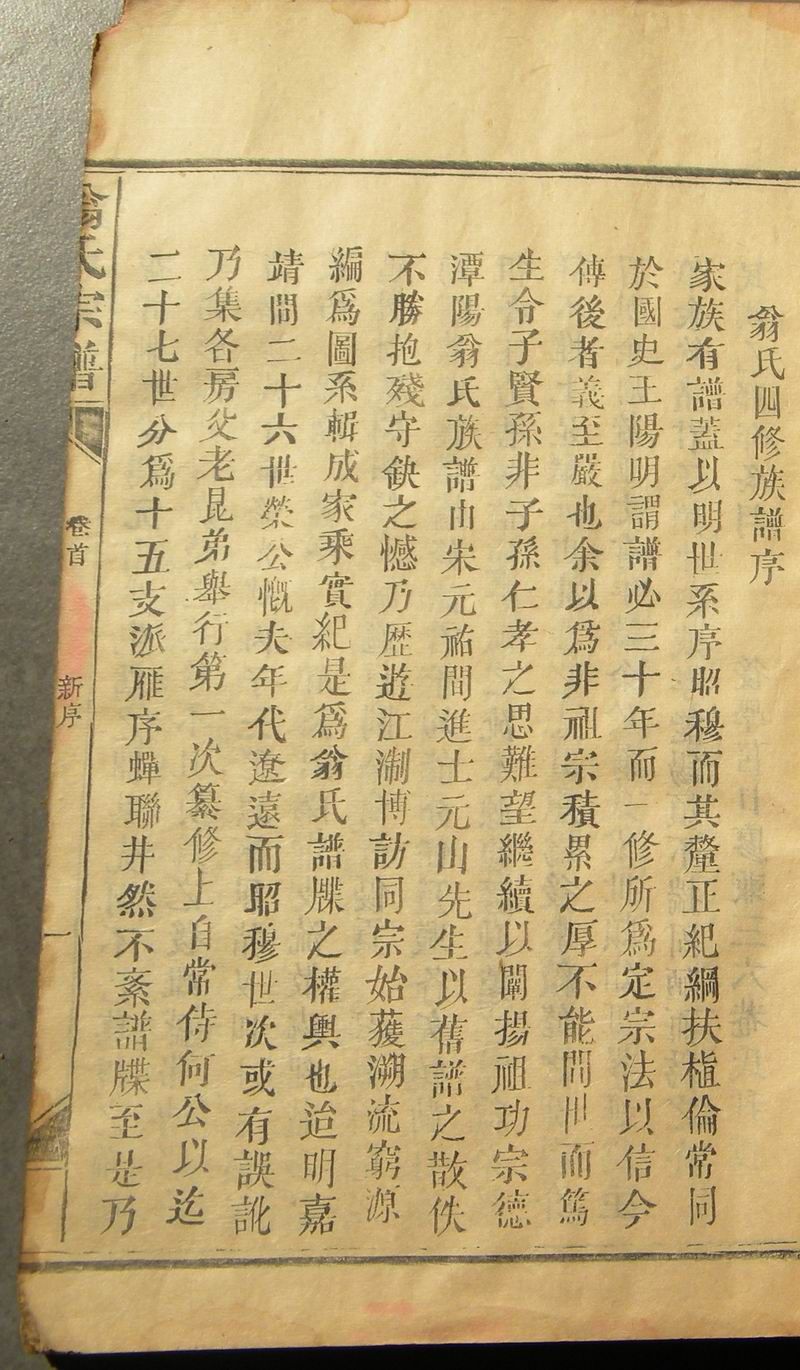 翁氏四修族譜序
家族有譜蓋以明世系序昭穆而其釐正紀綱扶植倫常同
於國史王陽明謂譜必三十年而一修所爲定宗法以信今
傳後者義至嚴也余以爲非祖宗積累之厚不能間世而篤
生令子賢孫非子孫仁孝之思難望繼續以闡揚祖功宗德
潭陽翁氏族譜由宋元祐間進士元山先生以舊譜之散佚
不勝抱殘守缺之憾乃歷遊江淛博訪同宗始獲溯流窮源
編爲圖系輯成家乘實紀是爲翁氏譜牒之權輿也迨明嘉
靖間二十六世榮公慨夫年代遼遠而昭穆世次或有誤訛
乃集各房父老昆弟舉行第一次纂修上自常侍何公以迄
二十七世分爲十五支派雁序蟬聯井然不紊譜牒至是乃
翁氏宗譜
卷首
新序
一